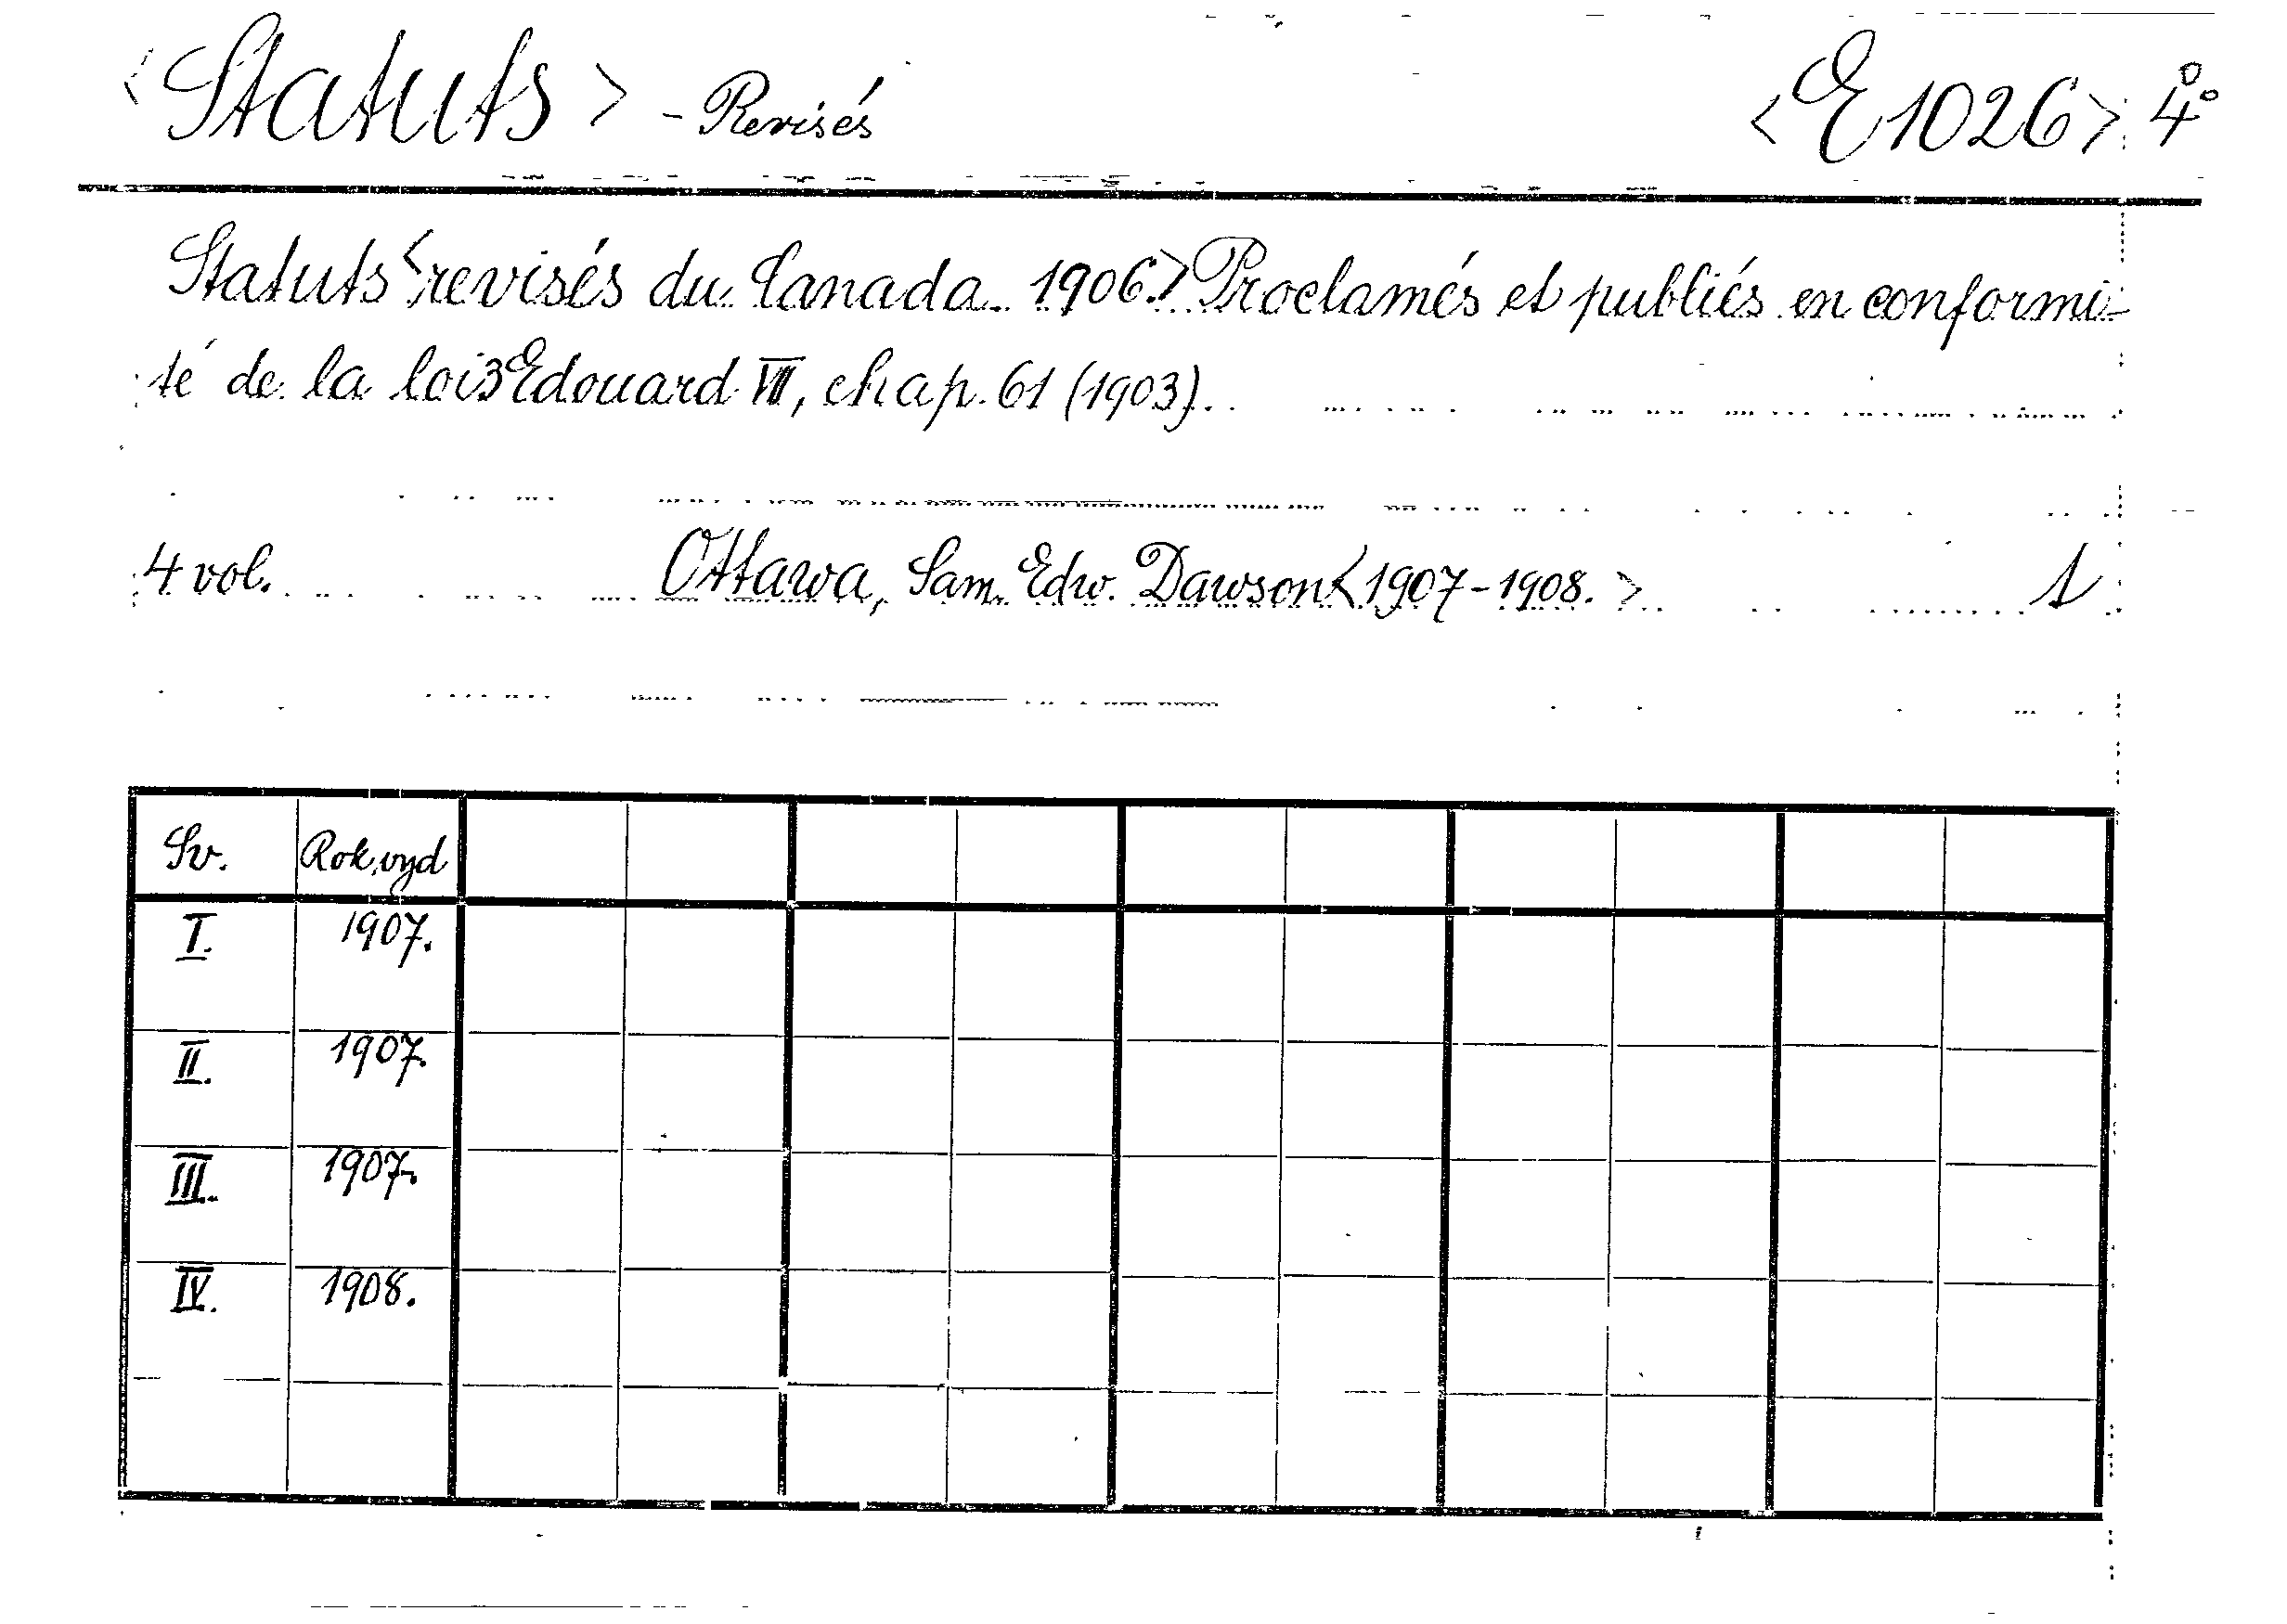 <Statuts> - Revisés <E1026> 4°
Statuts <revisés du Canada. 1906.> Proclamés et publiés en conformi-
té de la loi 3 Edouard VII, chap. 61 (1903).
4 vol. Ottawa, Sam. Edw. Dawson <1907-1908.> 1
Sv. Rok vyd
I. 1907.
II. 1907.
III. 1907.
IV. 1908.